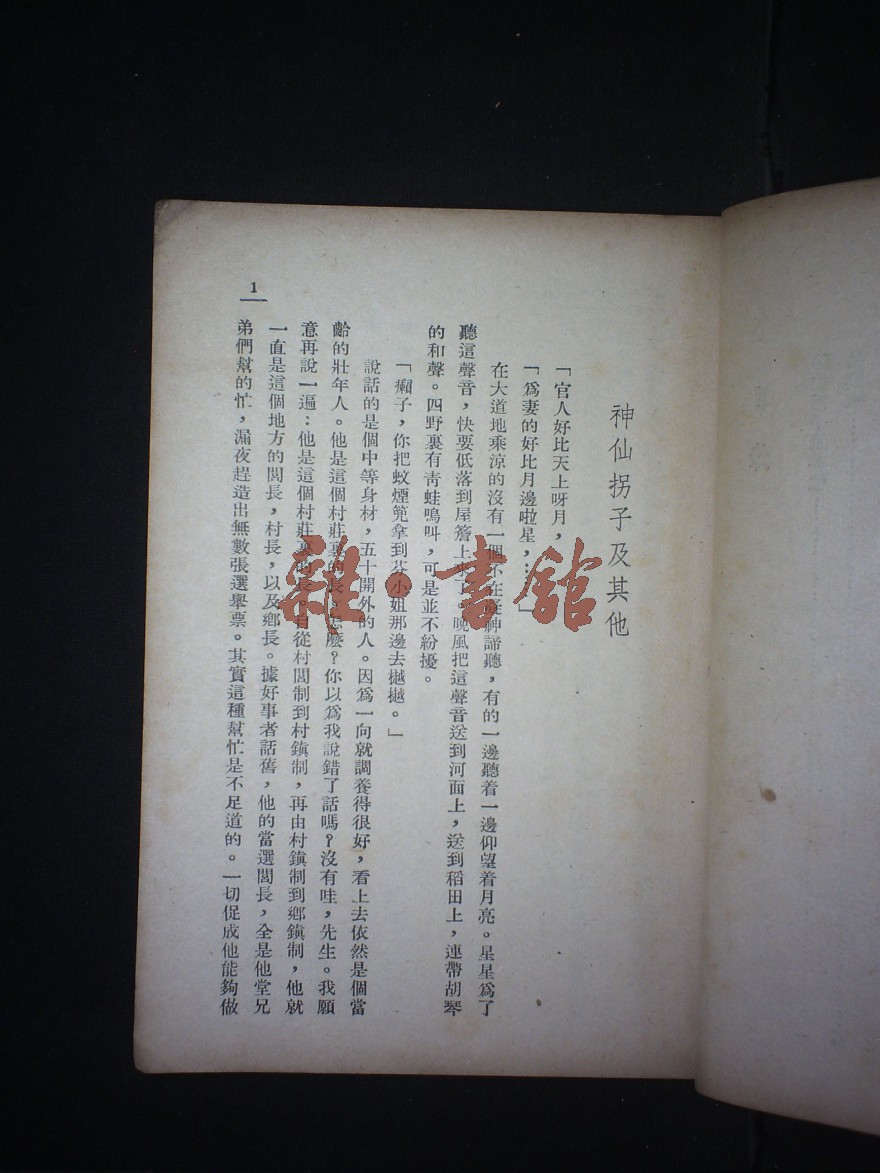 神仙拐子及其他
「官人好比天上呀月，
「為妻的好比月邊啦星，…」
在大道地乘涼的沒有一個不在 神諦聽，有的一邊聽着一邊仰望着月亮。星星為了
聽這聲音，快要低落到屋簷上 。晚風把這聲音送到河面上，送到稻田上，連帶胡琴
的和聲。四野裏有青蛙鳴叫，可是並不紛擾。
「癩子，你把蚊煙筦拿到芬小姐那邊去撼撼。」
說話的是個中等身材，五十開外的人。因為一向就調養得很好，看上去依然是個當
齡的壯年人。他是這個村莊裏的長。怎麼？你以為我說錯了話嗎？沒有哇，先生。我願
意再說一遍：他是這個村莊裏的長。自從村閭制到村鎮制，再由村鎮制到鄉鎮制，他就
一直是這個地方的閭長，村長，以及鄉長。據好事者話舊，他的當選閭長，全是他堂兄
弟們幫的忙，漏夜趕造出無數張選舉票。其實這種幫忙是不足道的。一切促成他能夠做
1
雜·書館